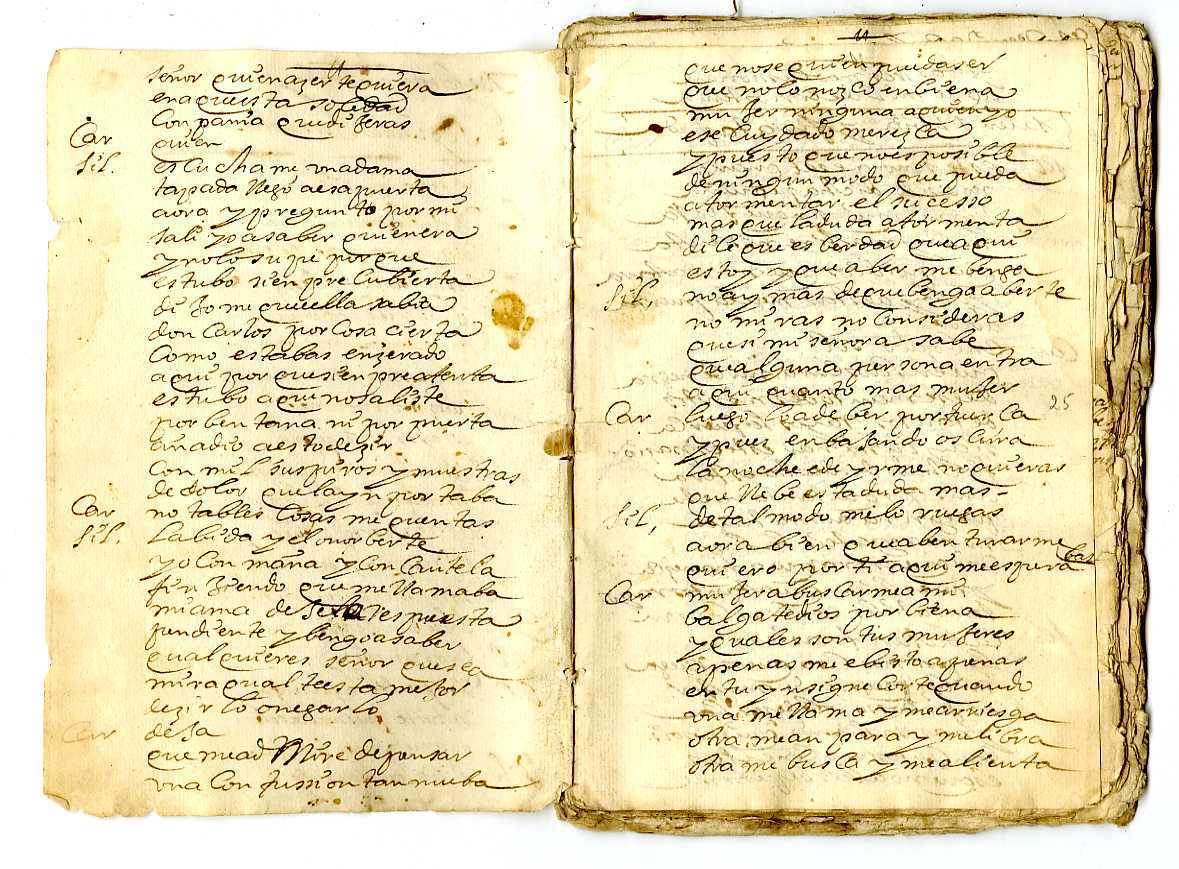 señor quien azer te quiera
en aquesta soledad
conpania que dijeras
Car quien
Sil. escuchame una dama
tapada llego a esa puerta
aora y pregunto por mi
sali yo a saber quien era
y no lo supe porque
estubo sienpre cubierta
dijome que ella sabia
don Carlos por cosa cierta
como estabas enzerado
aqui porque sienpre atenta
estubo a que no saliste
por bentana ni por puerta
añadio a esto dezir
con mil suspiros y muestras
de dolor que la ynportaba
Car notables cosas me quentas
Sil. la bida y el onor berte
yo con maña y con cautela
finjiendo que me llamaba
mi ama deje la respuesta
pendiente y bengo a saber
qual quieres señor que sea
mira qual te esta mejor
dezirlo o negarlo
Car deja
que me admire de pensar
una confussion tan nueba
11
que no se quien pueda ser
que no conozco en biena
mujer ninguna a quien yo
ese cuydado merezca
y puesto que no es posible
de ningun modo que pueda
atormentar el sucesso
mas que la duda atormenta
dile que es berdad que aqui
estoy y que a ber me benga
Sil. no ay mas de que benga a berte
no miras no consideras
que si mi señora sabe
que alguna persona entra
aqui quanto mas mujer
Car luego lo a de ber por fuerca 25
y pues en bajando oscura
la noche e de yrme no quieras
que llebe esta duda mas
Sil. de tal modo me lo ruegas
aora bien que abenturarme
quiero por ti aqui me espera
Car mujer a buscarme a mi
balgate dios por biena
y quales son tus mujeres
apenas me e bisto apenas
en tu ynsigne corte quando
una me llama y me arriesga
otra me anpara y me libra
otra me busca y me alienta